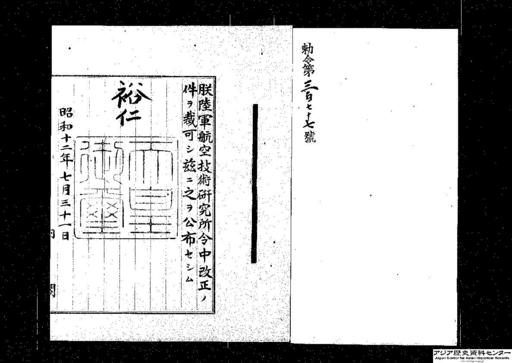 勅令第三百七十七號
朕陸軍航空技術研究所令中改正ノ
件ヲ裁可シ茲ニ之ヲ公布セシム
裕仁
天皇
御璽
昭和十二年七月三十一日
アジア歴史資料センター
Japan Center for Asian Historical Records